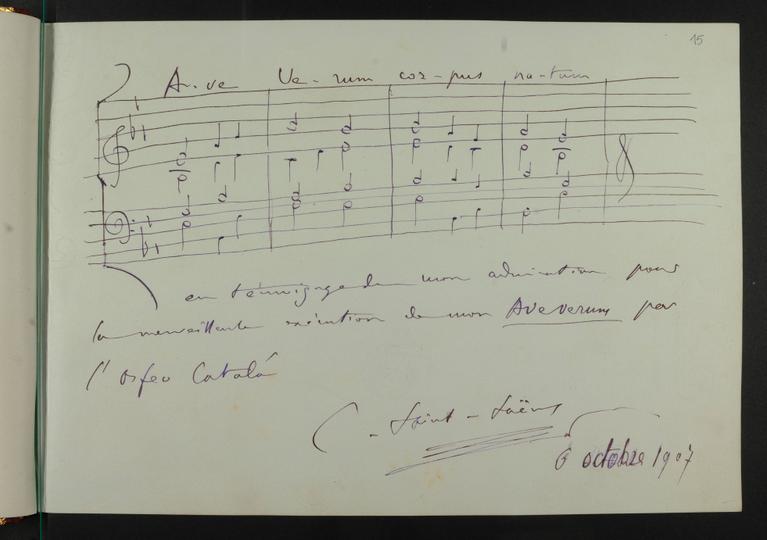 15
A-ve Ve-rum cor-pus na-tum
en témoignage de mon admiration pour
la merveilleuse exécution de mon Ave verum par
l'Orfeo Catalá
C. Saint-Saëns
6 octobre 1907